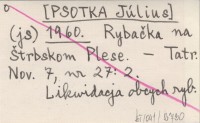 [PSOTKA Július]
(js) 1960. Rybačka na
Štrbskom Plese. – Tatr.
Nov. 7, nr 27: 2.
Likwidacja obcych ryb.